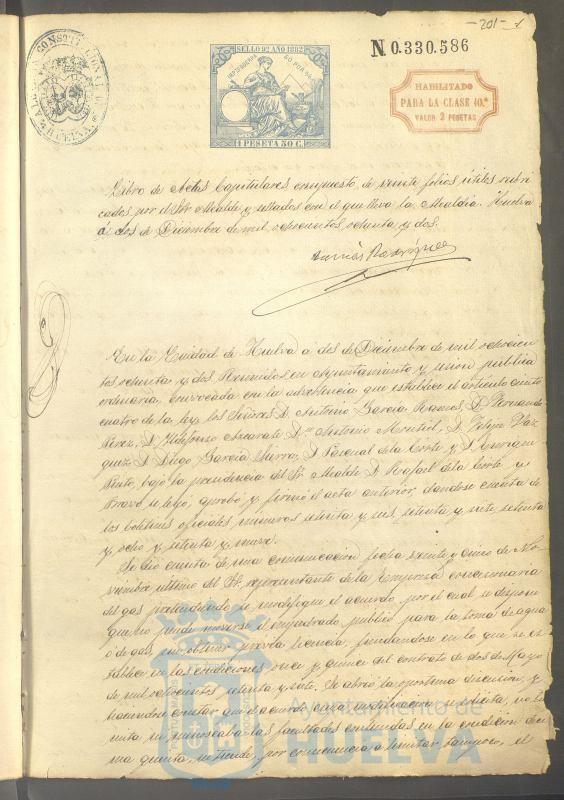 -201- 1
N 0.330.586
ALCALDIA CONSTITUCIONAL
HUELVA
SELLO 9º AÑO 1882
1 PESETA 50 C.
HABILITADO
PARA LA CLASE 10.ª
VALOR 2 PESETAS
Libro de Actas Capitulares compuesto de veinte folios útiles rubri
cados por el Sr Alcalde y sellados con el que usa la Alcaldía. Huelva
á dos de Diciembre de mil ochocientos ochenta y dos.
Rodríguez
En la Ciudad de Huelva a dos de Diciembre de mil ochocien
tos ochenta y dos Reunidos en Ayuntamiento y sesion publica
ordinaria, convocada con la advertencia que establece el artículo ciento
cuatro de la ley, los Señores D. Antonio Garcia Ramos, D. Fernando
Perez, D. Ildefonso Azcarate Dn. Antonio Montiel, D. Felipe Vaz
quez, D. Diego Garcia Sierra, D. Pascual de la Corte y D. Enrique
bajo la presidencia del Sr Alcalde D. Rafael de la Corte y
Bravo se leyó, aprobó y firmó el acta anterior, dandose cuenta de
los boletines oficiales, números setenta y seis, setenta y siete, setenta
y ocho y setenta y nueve.
Se dió cuenta de una comunicacion fecha veinte y cinco de No
viembre ultimo del Sr. representante de la Empresa concesionaria
del gas pretendiendo se modifique el acuerdo por el cual se dispone
que no puede moverse el empedrado publico para la toma de agua
ó de gas, sin obtener previa licencia, fundandose en lo que se es
tablece en las condiciones once y quince del contrato de dos de Mayo
de mil ochocientos setenta y siete. Se abrió la oportuna discusion, y
haciendose constar que el acuerdo cuya modificacion se solicita, no li
mita ni menoscaba las facultades contenidas en la condicion deci
ma quinta, ni tiende, por consecuencia a limitar tampoco, el
Ayuntamiento de
HUELVA